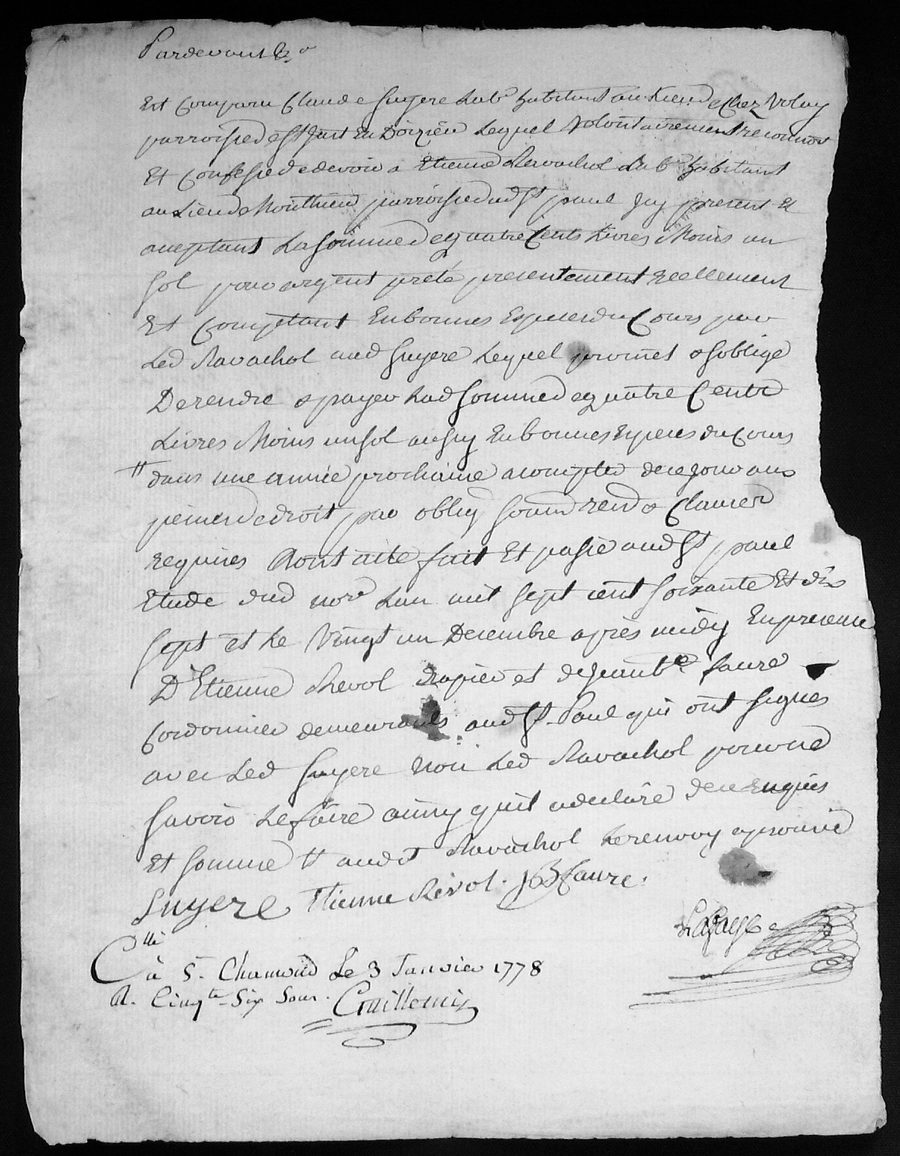 Pardevant &c
Est Comparu Claude Guyere Lab.r habitant au Lieu de Chez Volay
parroisse de St Just En Doizieu Lequel Volontairement reconnoit
Et Confesse de devoir a Etienne Ravachol Lab.r habitant
au Lieu de parroisse dud St paul Icy present Et
aceptant La somme de quatre Cents Livres Moins un
sol pour argent preté presentement reellement
Et Comptant En bonnes Especes du Cours par
Led Ravachol aud Guyere Lequel promet & soblige
De rendre & payer Lad somme de quatre Cents
Livres Moins un sol aussy En bonnes Especes du Cours
tt dans une année prochaine a compter de ce jour aux
peines de droit par oblig soum rend & Clauses
requises Dont acte fait Et passé aud St paul
Etude dud nore Lan mil sept cent soixante Et dix
sept et Le Vingt un Decembre apres midy En presence
Dr Etienne Revol drapier et de Jean bte faure
Cordonnier demeurants aud St. Paul qui ont signes
avec Led Guyere non Led Ravachol pour ne
savoir Le faire ainsy quil a declaré de ce Enquis
Et sommé tt audt Ravachol Le renvoy aprouvé
Guyere Etienne Révol. JB faure.
Lafayе
C.llé à St. Chamond Le 3 Janvier 1778
R. Cinq.te Six Sous.